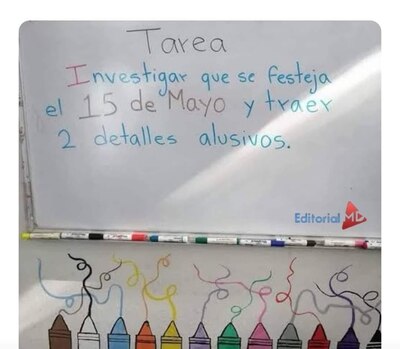 Tarea
Investigar que se festeja
el 15 de Mayo y traer
2 detalles alusivos.
Editorial MD